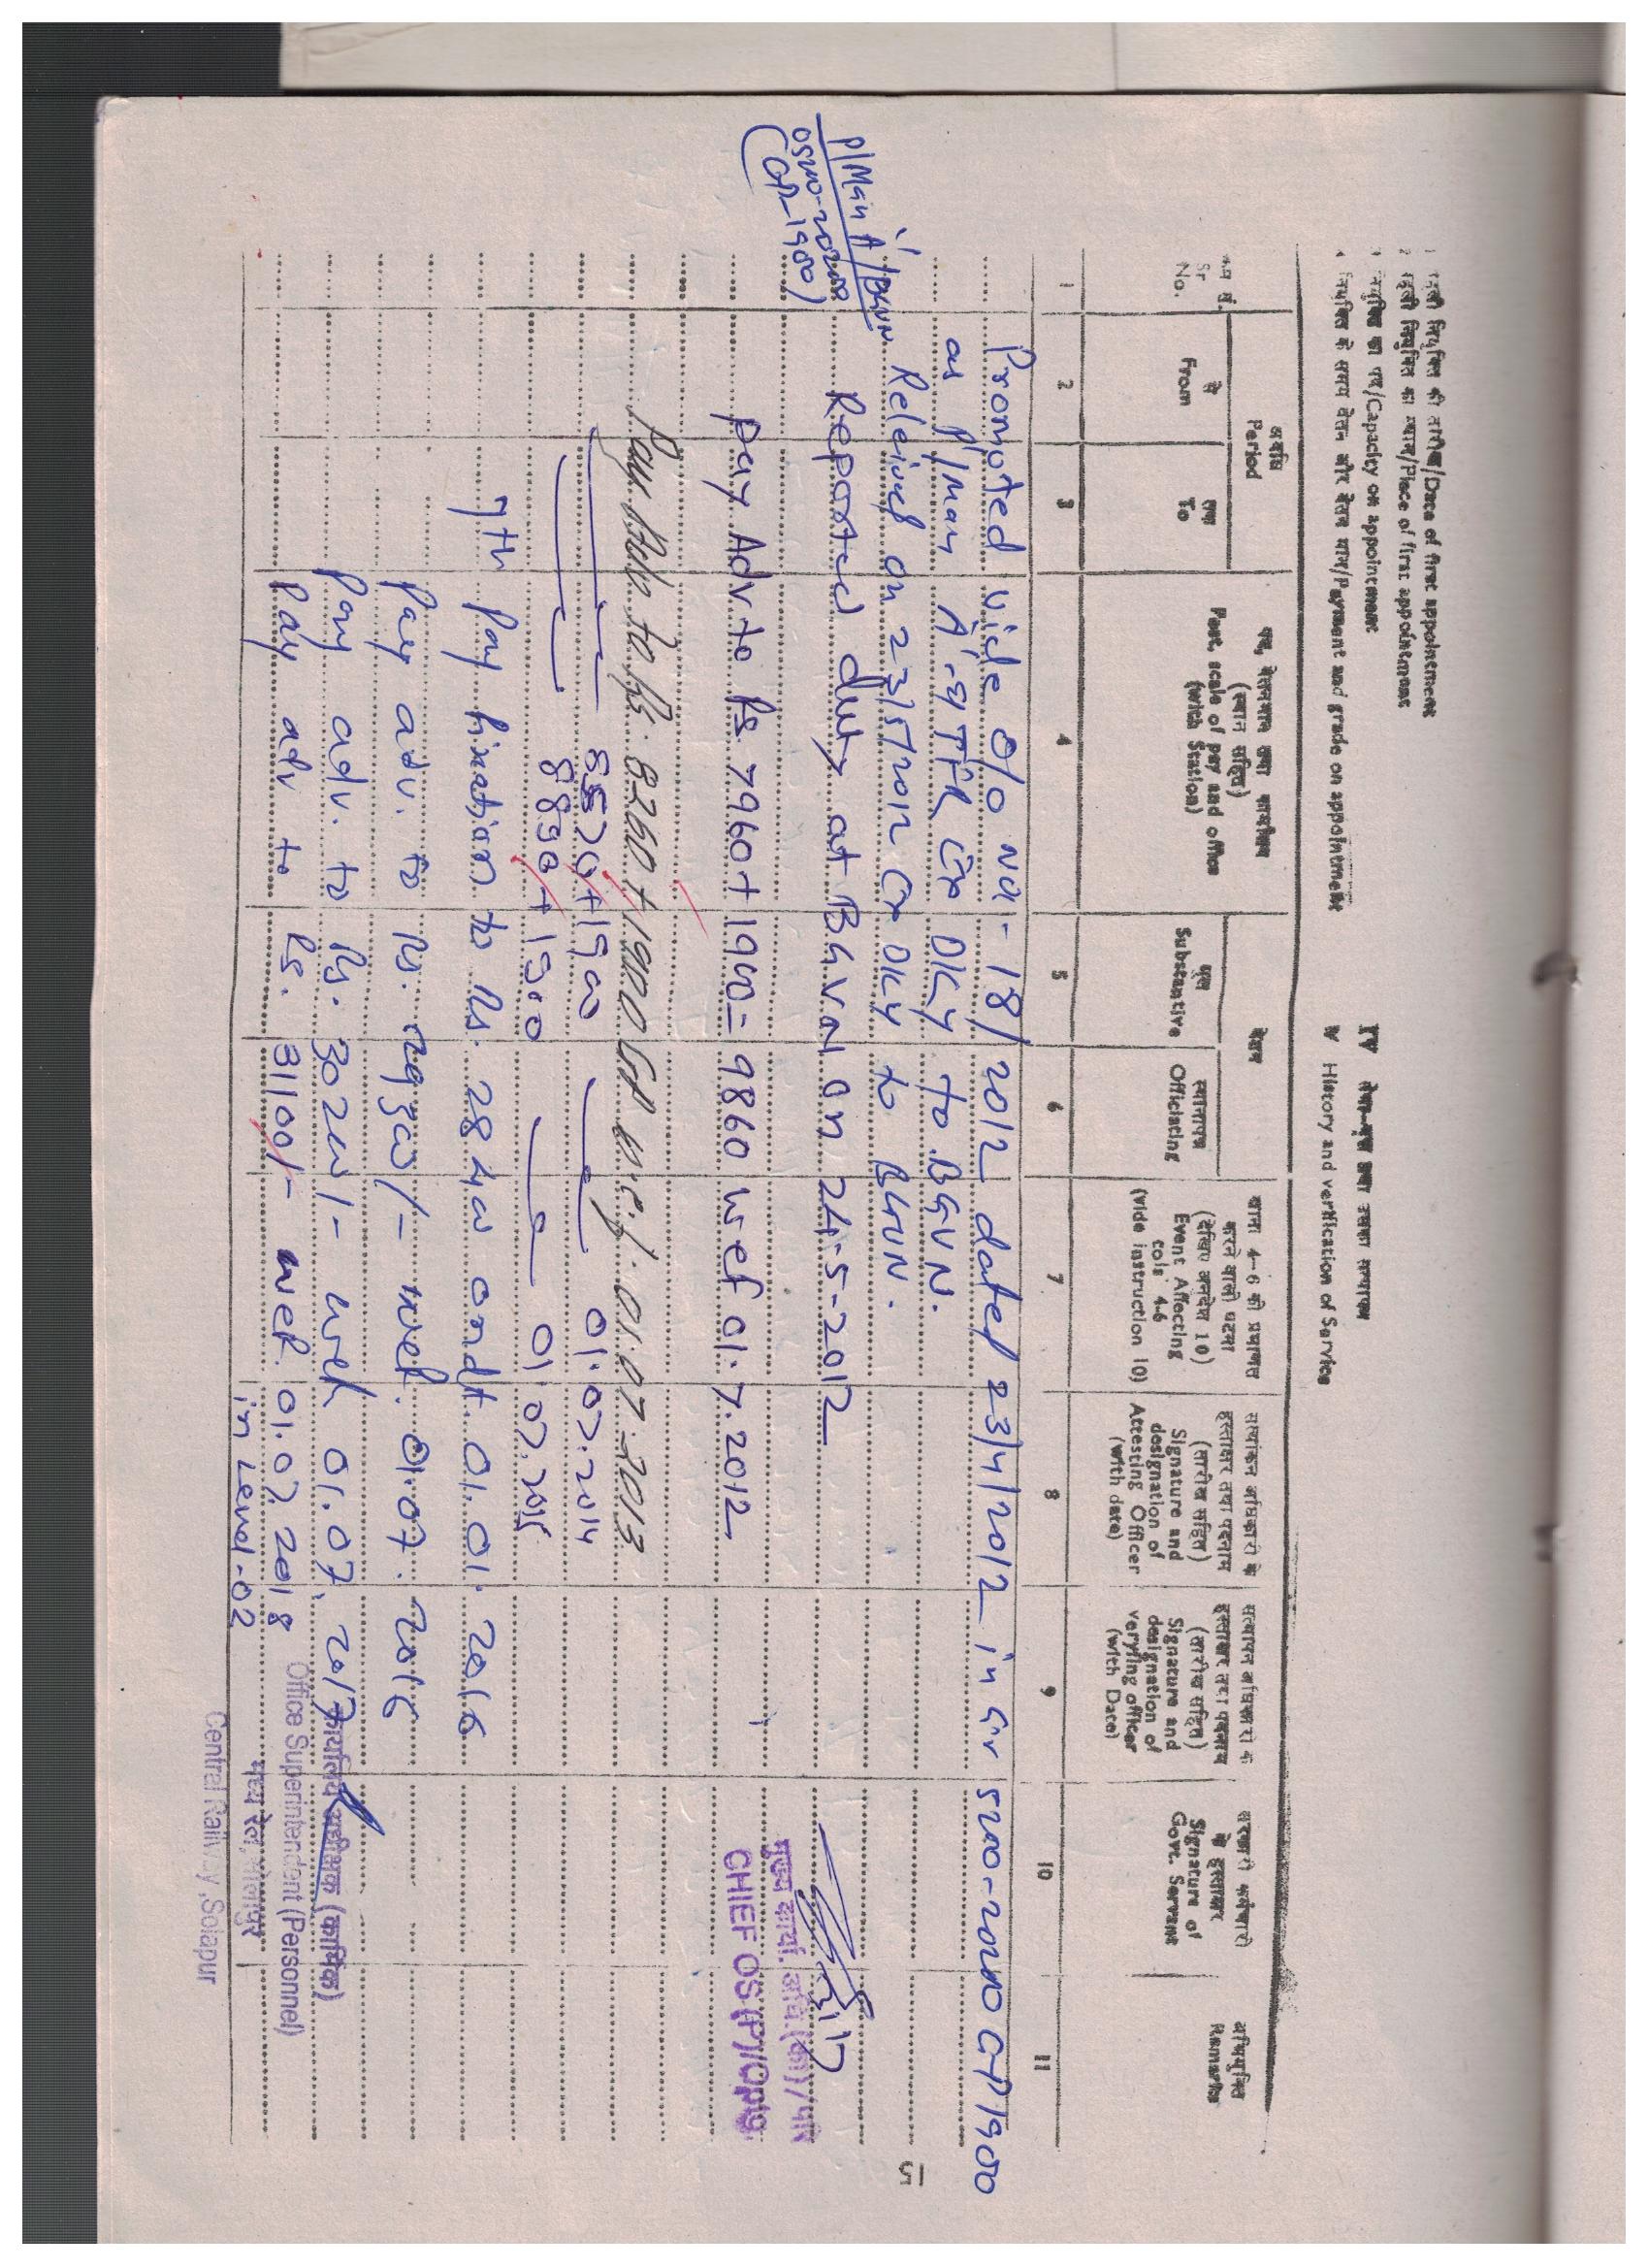 1 पहली नियुक्ति की तारीख/Date of first appointment
2 पहली नियुक्ति का स्थान/Place of first appointment
3 नियुक्ति का पद/Capacity on appointment
4 नियुक्ति के समय वेतन और वेतन मान/Payment and grade on appointment
IV सेवा-वृत्त तथा उसका सत्यापन
V History and verification of Service
क्रम सं. Sr No.
अवधि Period
से From
तक To
पद, वेतनमान तथा कार्यालय (स्थान सहित) Post, scale of pay and office (with Station)
वेतन
मूल Substantive
स्थानापन्न Officiating
खाना 4-6 को प्रभावित करने वाली घटना (देखिए अनुदेश 10) Event Affecting cols 4-6 (vide instruction 10)
सत्यांकन अधिकारी के हस्ताक्षर तथा पदनाम (तारीख सहित) Signature and designation of Attesting Officer (with date)
सत्यापन अधिकारी के हस्ताक्षर तथा पदनाम (तारीख सहित) Signature and designation of verying officer (with Date)
सरकारी कर्मचारी के हस्ताक्षर Signature of Govt. Servant
अभियुक्ति Remarks
1 2 3 4 5 6 7 8 9 10 11
Promoted vide O/O No - 18/2012 dated 23/4/2012 in Gr 5200-20200 GP 1900
as P/Man 'A' Gr DKY to BGVN.
P/Man 'A'/BGVN
05200-20200
(GP-1900)
Releived on 23/5/2012 Ex DKY to BGVN.
Reported duty at BGVN on 24-5-2012
मुख्य कार्या. अधि. (का)/परि
CHIEF OS (P)/Optg.
Pay Adv to Rs 7960+1900=9860 wef 01.7.2012
Pay adv to Rs. 8260+1900 GP w.e.f. 01.07.2013
8570+1900 01.07.2014
8890+1900 01.07.2015
7th Pay fixation to Rs. 28400 on dt. 01.01.2016
Pay adv. to Rs. 29300/- wef. 01.07.2016
Pay adv. to Rs. 30200/- wef. 01.07.2017
Pay adv to Rs. 31100/- wef. 01.07.2018
in Level-02
कार्यालय अधीक्षक (कार्मिक)
Office Superintendent (Personnel)
मध्य रेल, सोलापुर
Central Railway, Solapur
15